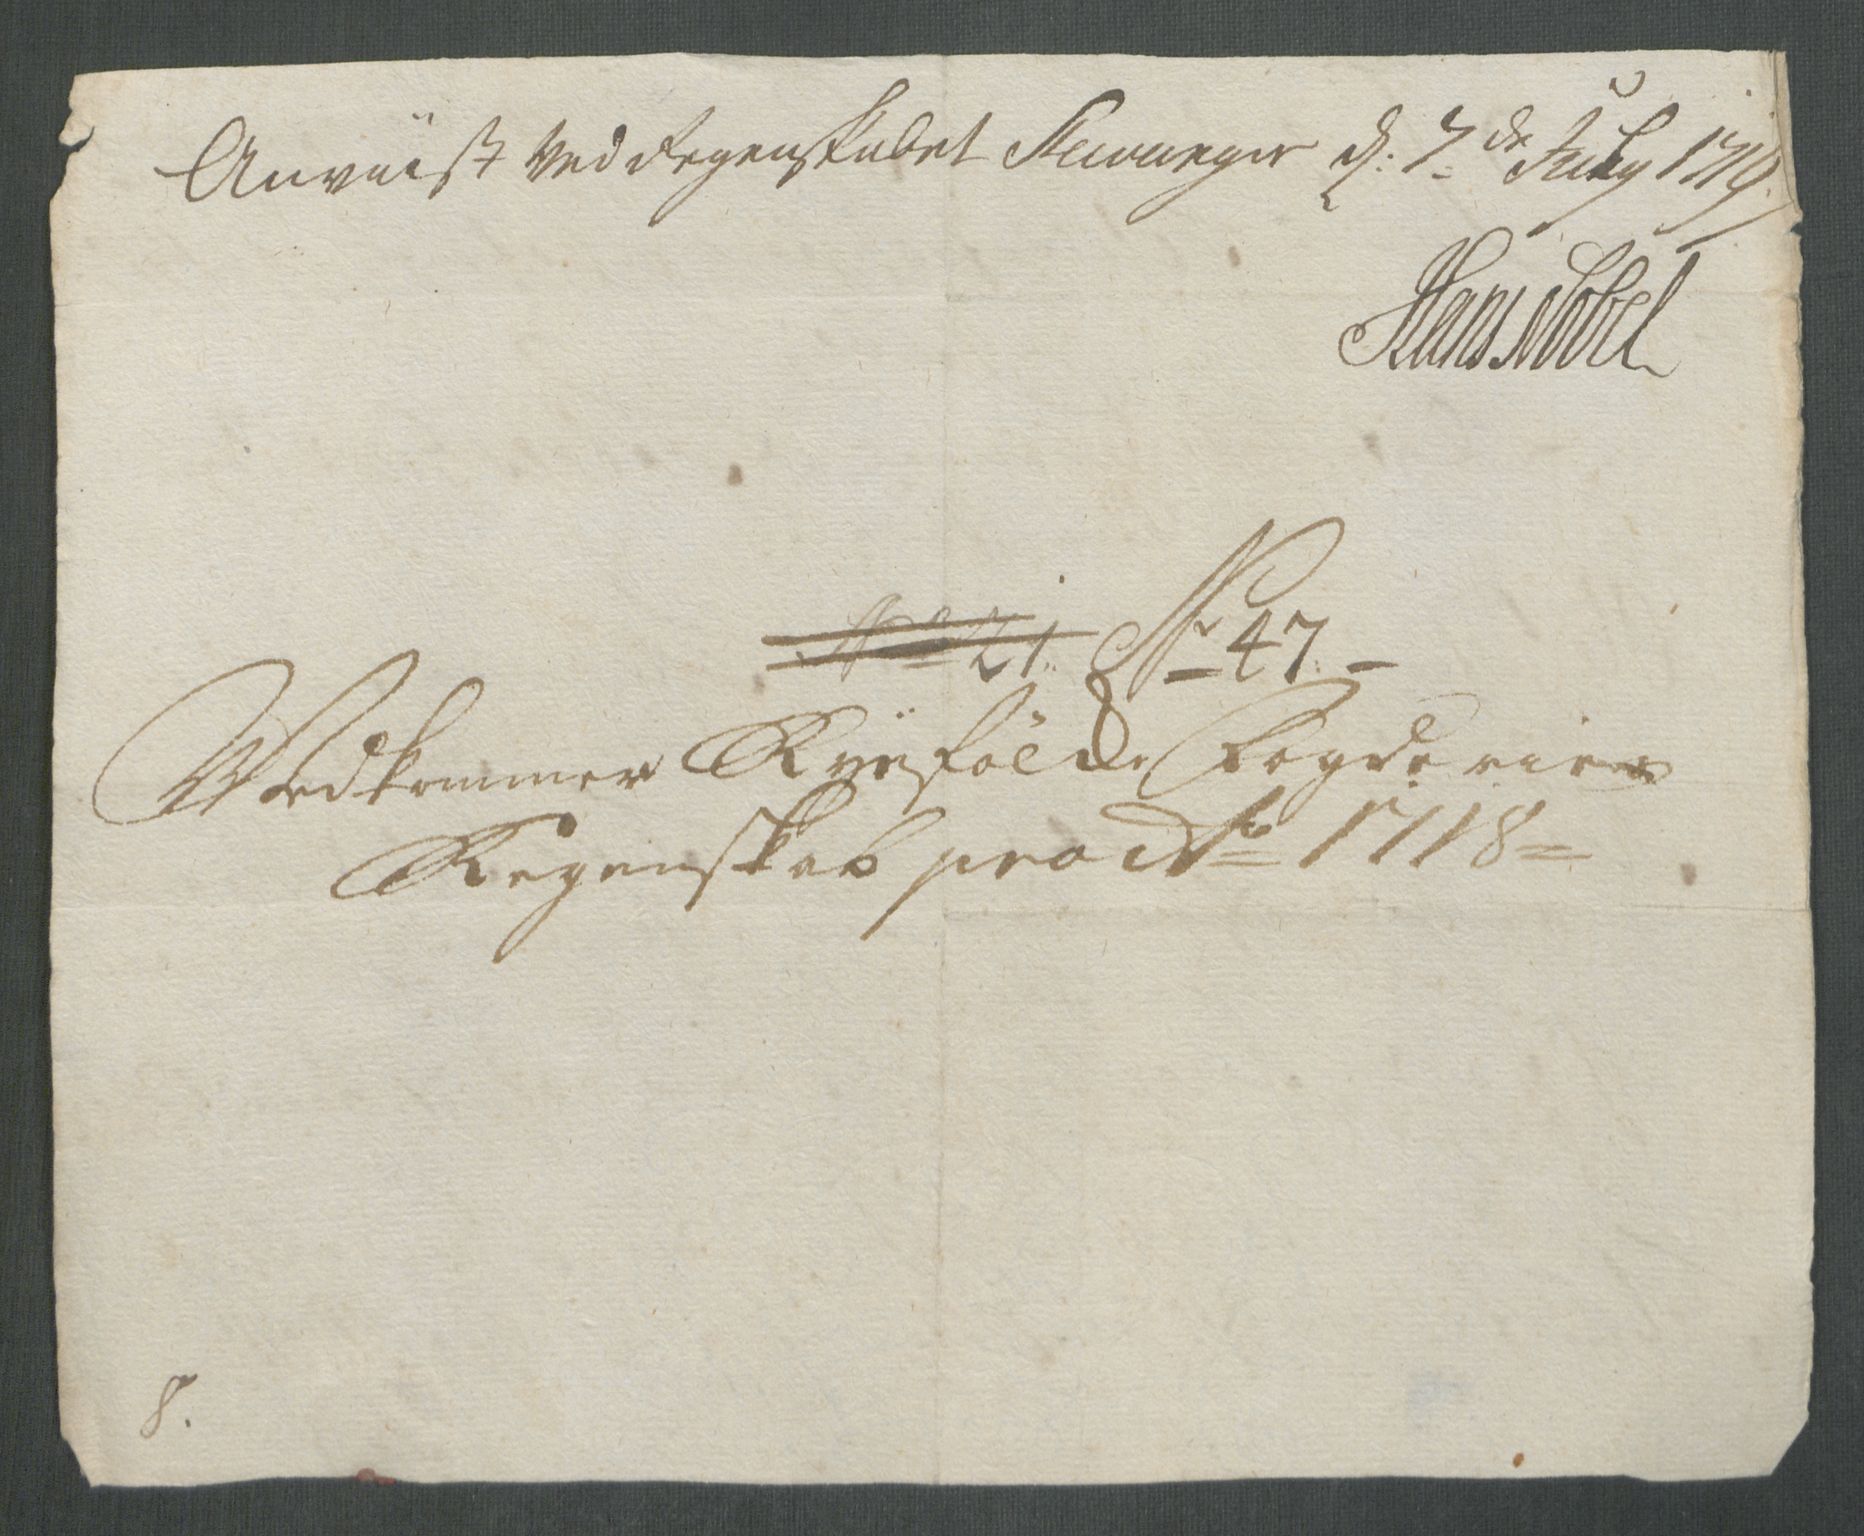 Anvüist ved Regenskabet Stavanger d: 7de July 1719.
Hans Nobel
No 21. Nr 47.
Vedkommer Ryefölche Fogderies
Regenskab pro Ao 1718
8.